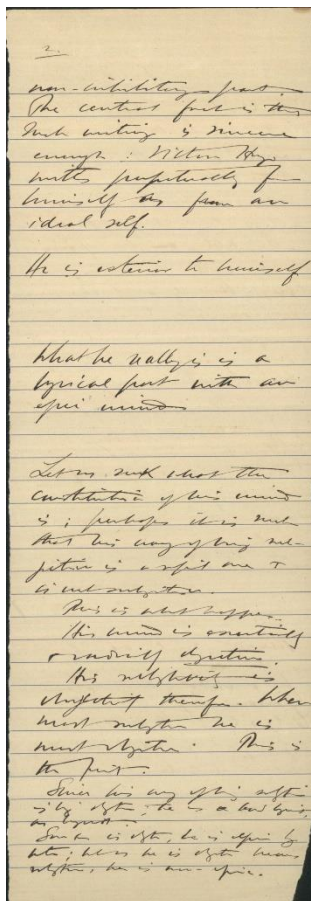 2.
non-inhibitory poet.
The central fact is this
such writing is sincere
enough: Victor Hugo
writes perpetually from
himself as from an
ideal self.
He is exterior to himself
What he really is is a
lyrical poet with an
epic mind
Let us seek what the
constitution of his mind
is; perhaps it is such
that his way of being sub-
jective is a and
is not subjective.
This is what happens.
His mind is essentially
& radically objective.
His subjectivity is
objective therefore. When
most subjective he is
most objective. This is
the point.
Since his way of being
is by he is a bad lyrist,
as lyrist.
is he is epic by
he is
he is non-epic.